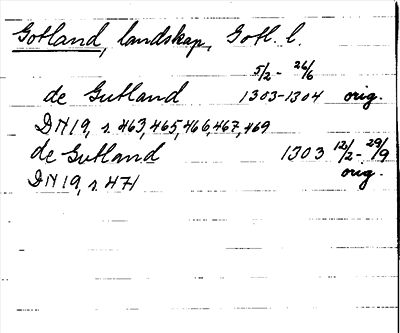 Gotland, landskap, Gotl. l.
5/2 - 26/6
de Gutland 1303-1304 orig.
DN 19, s. 463, 465, 466, 467, 469
de Gutland 1303 12/2 - 29/9
orig.
DN 19, s. 471